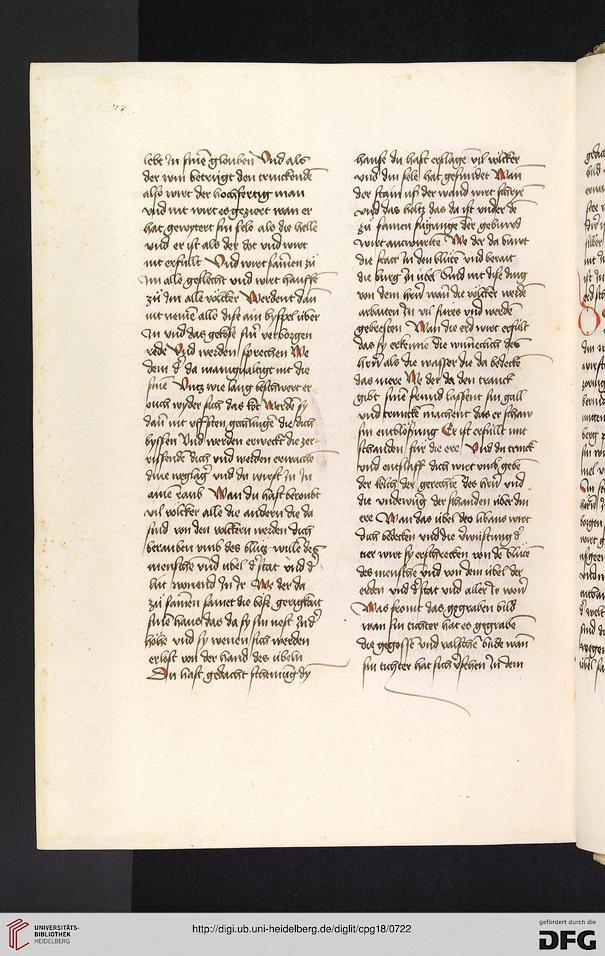 lebt in sinē glouben Vnd als
der win betrúgt den trinckende
also wirt der hochfertig man
vnd nit wirt er gezieret wan er
hat gewytert sin sele als die helle
vnd er ist als der tod vnd wirt
nit erfúllt Vnd wirt samen zů
im alle geslecht vnd wirt hauffē
zů im alle völcker Werdent dan
nit nemē alle dise ain byspel über
in vnd das gekose sinr verborgen
rede Vnd werden sprechen We
dem der da manigualtigt nit die
sinē Vntz wie lang beschwert er
ouch wyder sich das kot Werdē sy
dan nit vffsten gechlingē die dich
byssen Vnd werden erweckt die zer-
rissende dich vnd werden erwache
dine weglag vnd du wirst in in
ainē roub Wan du hast beroubt
vil völcker alle die andern die da
sind von den volckern werden dich
berauben vmb des blůtz wille des
mensche vnd úbel der stat vnd der
lút wonend in ir We der da
zů samen samet die böse gerigkait
sinē haus das da sy sin nest in der
höhe vnd sy wenen sich werden
erlöst von der hand des úbeln
Du hast gedacht schemung dy
hause du hast erslage vil völcker
vnd din sele hat gesundet Wan
der stain uß der wand wirt schrye
vnd das holtz das da ist vnder de
zů samen fúgunge der gebúwd
wirt antwurte We der da buwt
die statt in den blůte vnd berait
die burg in úbel Vnd nit dise ding
von dem herrn wan die völcker werde
arbaiten in vil fúres vnd werde
gebresten Wan die erd wirt erfúlt
das sy erkenne die wunneclich des
herrn als die wasser die da bedecke
das mere We der da den tranck
gibt sinē frúnd lassent sin gall
vnd trunckē machent das er schaw
sin entblösung Er ist erfúllt mit
schanden fúr die ere Vnd du trinck
vnd entslaff dich wirt vmb gebē
der kelch der gerechte des herrn vnd
die vndewung der schanden über din
ere Wan das úbel des libans wirt
dich bedecken vnd die verwústung der
tier wirt sy erschrecken von de blůte
des mensche vnd von dem úbel der
erden vnd der stat vnd aller ir wonr
Was fromt das gegraben bild
wan sin tichter hat es gegrabē
die gegosse vnd valsche bilde wan
sin tichter hat sich versehen in dem
UNIVERSITÄTS-
BIBLIOTHEK
HEIDELBERG
http://digi.ub.uni-heidelberg.de/diglit/cpg18/0722
gefördert durch die
DFG